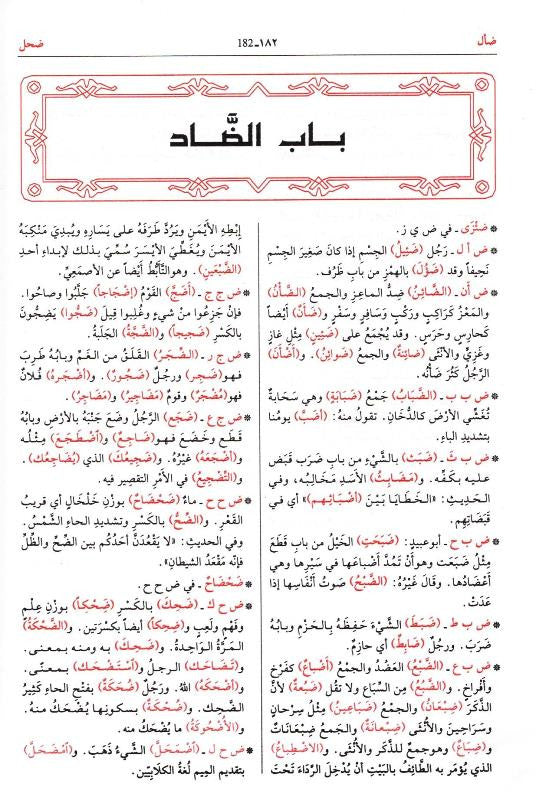 ضأل
١٨٢ـ182
ضحل
باب الضَّاد
* ضئْزَى ـ في ض ي ز.
* ض أ ل ـ رَجُل (ضَئِيلُ) الجِسْمِ إذا كانَ صَغِيرَ الجِسْمِ
نَحِيفاً وقد (ضَؤُلَ) بالهَمْزِ من بابِ ظَرُف.
* ض أن ـ (الضَّائِنُ) ضِدُّ المَاعِزِ والجمعُ (الضَّأْنُ)
والمَعْزُ كَرَاكِبٍ ورَكْبٍ وسَافِرٍ وسَفْرٍ و(ضَأَنٌ) أيْضاً
كحارِسٍ وحَرَسٍ. وقد يُجْمَعُ على (ضَئِينٍ) مِثْلُ غازٍ
وغَزِيٍّ والأُنْثَى (ضائِنَةٌ) والجمعُ (ضَوَائِنُ). و(أَضْأَنَ)
الرَّجُلُ كَثُرَ ضَأْنُه.
* ض ب ب ـ (الضَّبَابُ) جَمْعُ (ضَبَابَةٍ) وهي سَحَابةٌ
تُغَشِّي الأرْضَ كالدُّخَانِ. تقولُ منهُ: (أَضَبَّ) يومُنا
بتشديدِ الباءِ.
* ض ب ث ـ (ضَبَثَ) بالشَّيْءِ من بابِ ضَرَبَ قَبَضَ
عليه بكَفِّه. و(مَضَابِثُ) الأسَدِ مَخَالِبُه، وفي
الحديثِ: «الخَطَايا بَيْنَ (أَضْبَاثِهم)» أي في
قَبَضَاتِهِم.
* ض ب ح ـ أبوعبيدٍ: (ضَبَحَتِ) الخَيْلُ من بابِ قَطَعَ
مِثْلُ ضَبَعَت وهو أنْ تَمُدَّ أضْبَاعَها في سَيْرِها وهي
أعْضَادُها. وقالَ غَيْرُهُ: (الضَّبْحُ) صَوتُ أنْفَاسِها إذا
عَدَتْ.
* ض ب ط ـ (ضَبَطَ) الشَّيْءَ حَفِظَهُ بالحَزْمِ وبابُهُ
ضَرَبَ. ورجلٌ (ضَابِطٌ) أي حازِمٌ.
* ض ب ع ـ (الضَّبْعُ) العَضُدُ والجمْعُ (أَضْبَاعٌ) كفَرْخٍ
وأفْراخٍ. و(الضَّبُعُ) مِنَ السِّبَاعِ ولا تَقُلْ (ضَبُعَةٌ) لأنَّ
الذَّكَرَ (ضِبْعَانٌ) والجمعُ (ضَبَاعِينُ) مِثْلُ سِرْحانٍ
وسَرَاحِينَ والأُنْثَى (ضِبْعَانَةٌ) والجَمعُ ضِبْعَاناتٌ
و(ضِبَاعٌ) وهو جمعٌ للذَّكَرِ والأُنْثَى. و(الاضْطِبَاعُ)
الذي يُؤمَر به الطَّائِفُ بالبَيْتِ أنْ يُدْخِلَ الرِّدَاءَ تَحْتَ
إبْطِهِ الأيْمَنِ ويَرُدَّ طَرَفَهُ على يَسَارِه ويُبْدِيَ مَنْكِبَهُ
الأيْمَنَ ويُغَطِّيَ الأيْسَرَ سُمِّيَ بذلك لإبداءِ أحدِ
(الضَّبْعَيْنِ). وهو التَّأَبُّطُ أيْضاً عن الأصمَعِيّ.
* ض ج ج ـ (أَضَجَّ) القَوْمُ (إضْجَاجاً) جَلَّبُوا وصاحُوا.
فإنْ جَزِعُوا منْ شيءٍ وغُلِبوا قِيلَ (ضَجُّوا) يَضِجُّونَ
بالكَسْرِ (ضَجِيجاً) و(الضَّجَّةُ) الجَلَبَةُ.
* ض ج ر ـ (الضَّجَرُ) القَلَقُ من الغَمِّ وبابُهُ طَرِبَ
فهو(ضَجِر) ورجلٌ (ضَجُورٌ). و(أَضْجَرَهُ) فُلانٌ
فهو(مُضْجَرٌ) وقومٌ (مَضَاجِيرُ) و(مَضَاجِرُ).
* ض ج ع ـ (ضَجَعَ) الرَّجُلُ وضَعَ جَنْبَهُ بالأرْضِ وبابُهُ
قَطَع وخَضَعَ فهو(ضَاجِعٌ) و(اضْطَجَعَ) مِثْلُه
و(أَضْجَعَهُ) غَيْرُهُ. و(ضَجِيعُكَ) الذي (يُضَاجِعُك).
و(التَّضْجِيعُ) في الأَمْرِ التقصِير فِيه.
* ض ح ح ـ ماءٌ (ضَحْضَاحٌ) بوزْنِ خَلْخَالٍ أي قريبُ
القَعْرِ. و(الضِّحُّ) بالكَسْرِ وتشديدِ الحاءِ الشَّمْسُ.
وفي الحديثِ: «لا يَقْعُدَنَّ أحَدُكُم بين الضِّحِّ والظِّلِّ
فإنّه مَقْعَدُ الشيطانِ».
* ضَحْضَاحٌ ـ في ض ح ح.
* ض ح ك ـ (ضَحِكَ) بالكَسْرِ (ضَحِكاً) بوزنِ عِلْمٍ
وفَهْمٍ ولَعِبٍ و(ضِحِكاً) أيضاً بكَسْرتَين. و(الضَّحْكَةُ)
المَرَّةُ الوَاحِدةُ. و(ضَحِكَ) به ومنه بمعنى.
و(تَضَاحَكَ) الرجلُ و(اسْتَضْحَكَ) بمعنًى.
و(أَضْحَكَهُ) اللهُ. ورجُلٌ (ضُحَكَةٌ) بفتحِ الحاءِ كَثِيرُ
الضَّحِكِ. و(ضُحْكَةٌ) بسكونِها يُضْحَكُ منهُ.
و(الأُضْحُوكَةُ) ما يُضْحَكُ منه.
* ض ح ل ـ (اضْمَحَلَّ) الشَّيْءُ ذَهَبَ. و(امْضَحَلَّ)
بتقديمِ المِيم لُغةُ الكلابِيِّينَ.